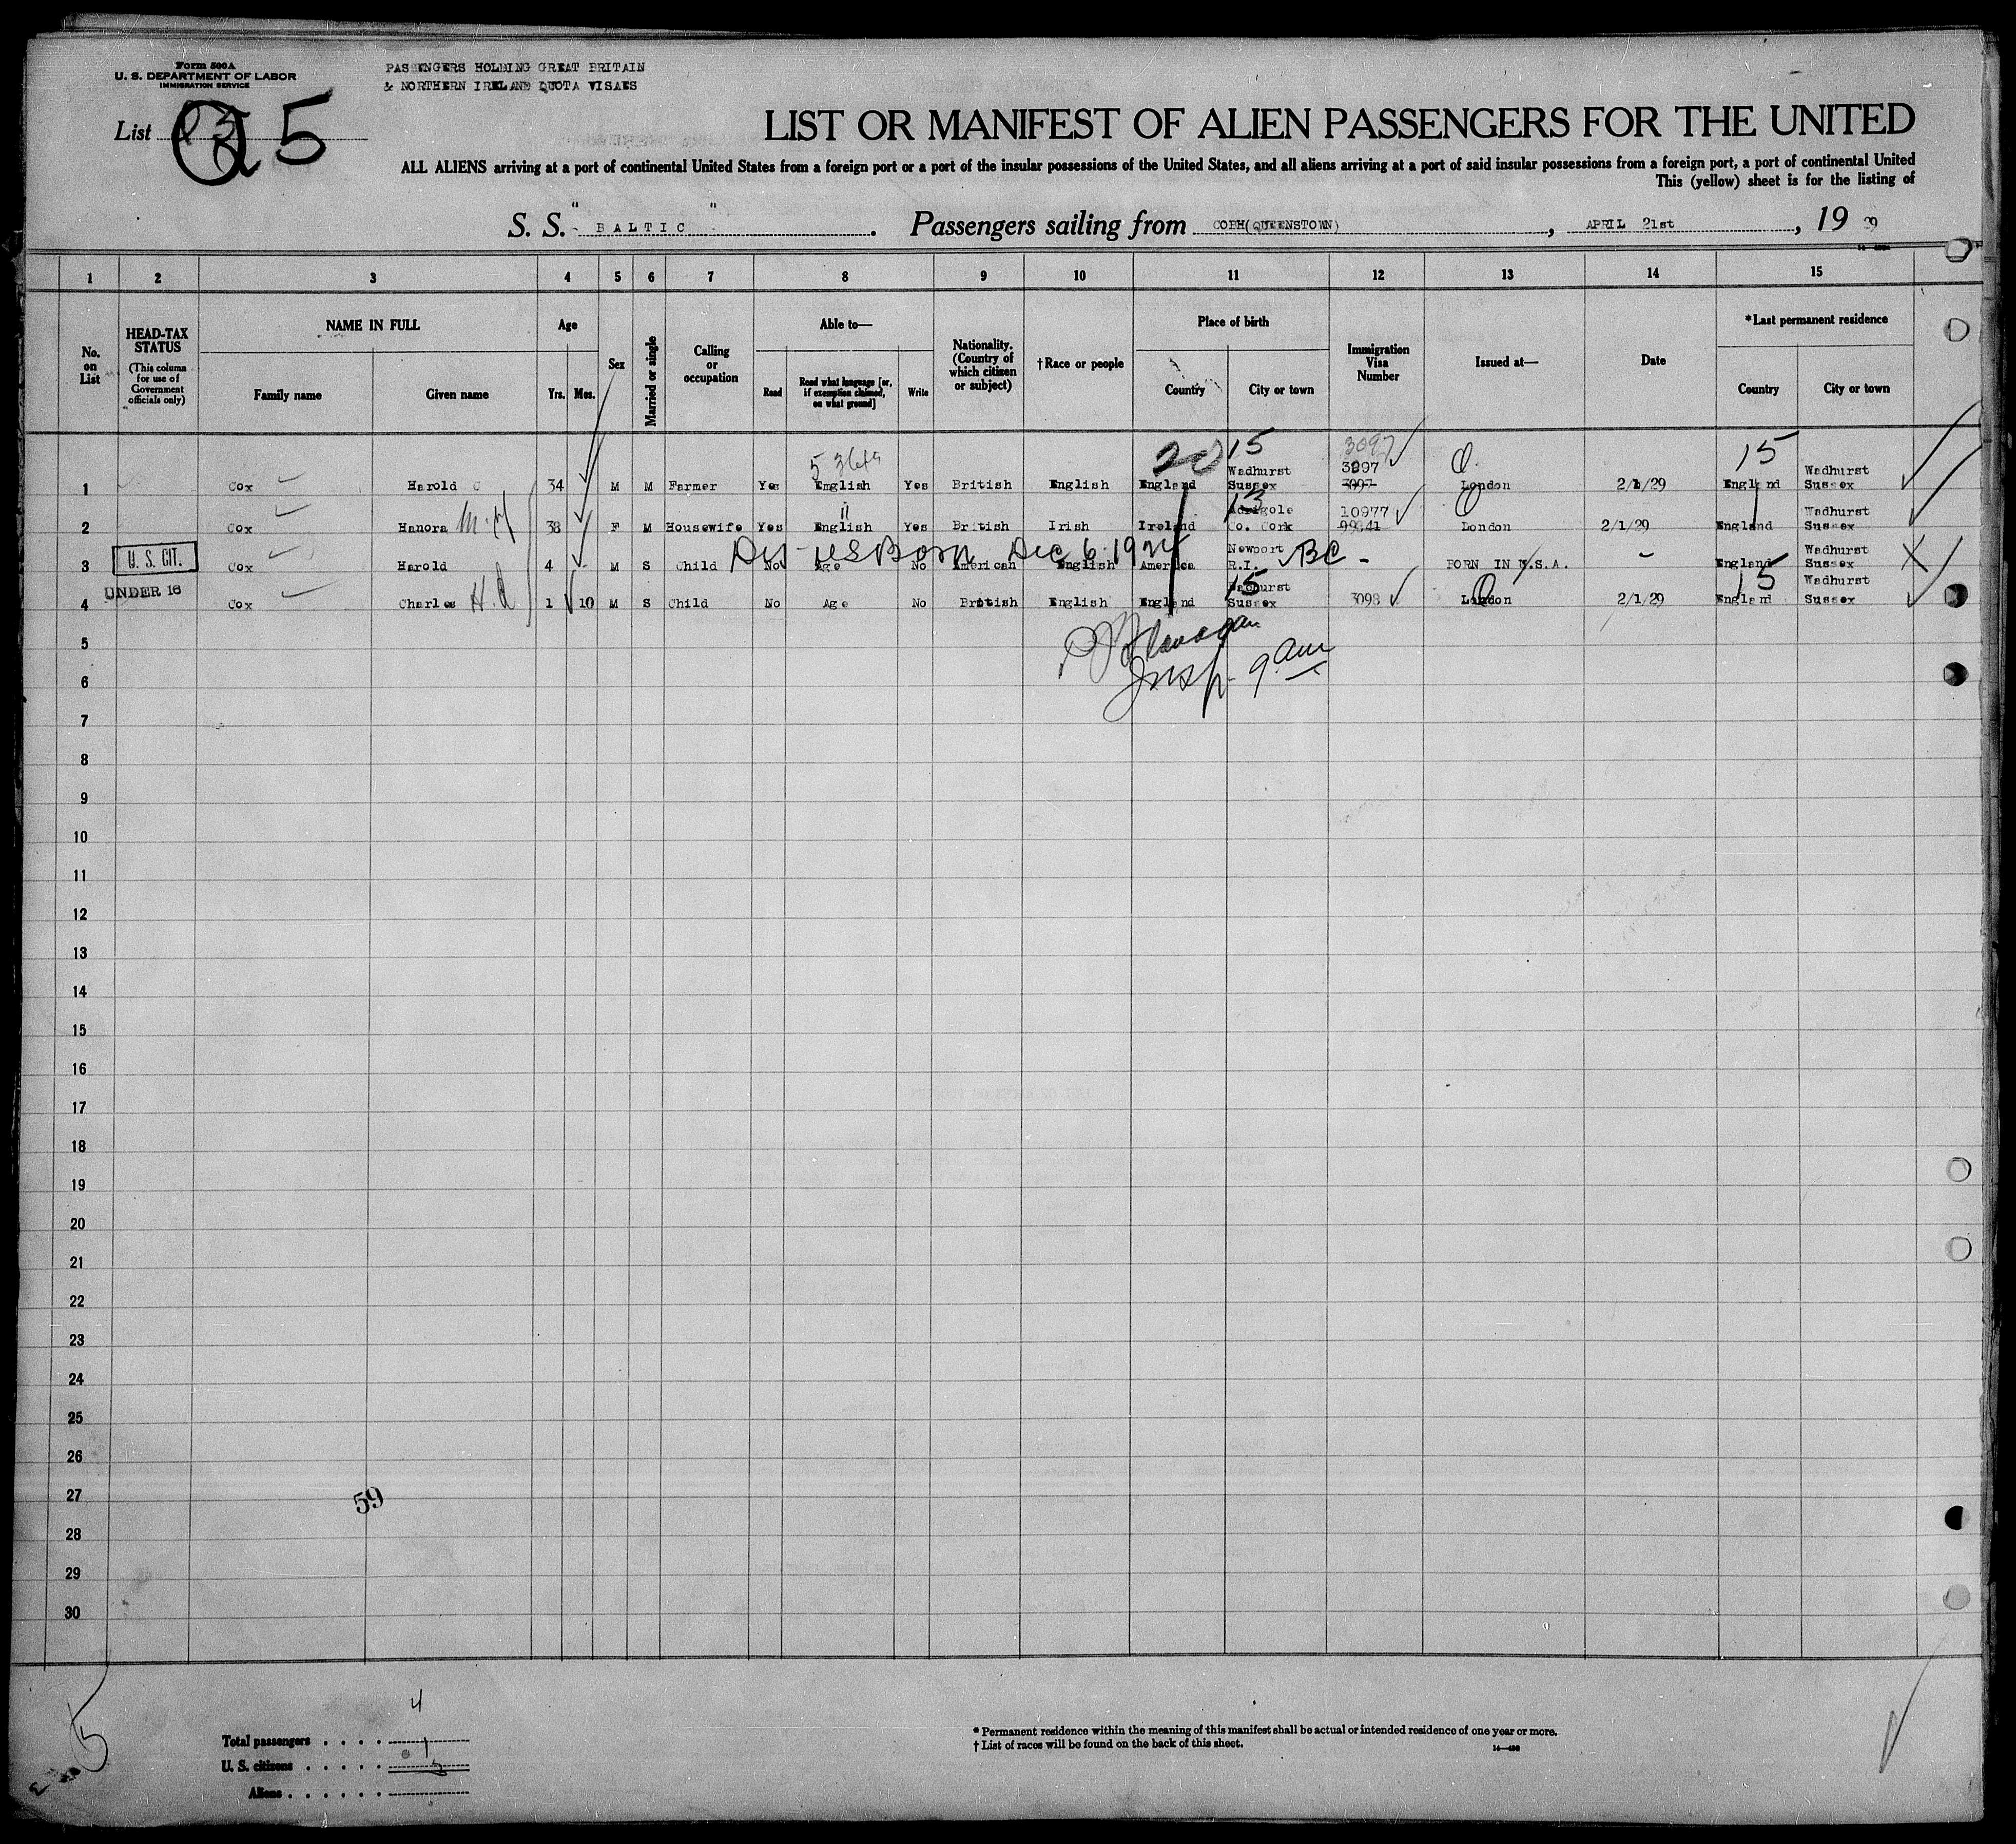 Form 500A
U. S. DEPARTMENT OF LABOR
IMMIGRATION SERVICE
PASSENGERS HOLDING GREAT BRITAIN
& NORTHERN IRELAND QUOTA VISAES
List Q 5
LIST OR MANIFEST OF ALIEN PASSENGERS FOR THE UNITED
ALL ALIENS arriving at a port of continental United States from a foreign port or a port of the insular possessions of the United States, and all aliens arriving at a port of said insular possessions from a foreign port, a port of continental United
This (yellow) sheet is for the listing of
S. S. "BALTIC". Passengers sailing from COBH(QUEENSTOWN), APRIL 21st, 19 29
1 2 3 4 5 6 7 8 9 10 11 12 13 14 15
No. on List
HEAD-TAX STATUS
(This column for use of Government officials only)
NAME IN FULL
Family name Given name
Age
Yrs. Mos.
Sex
Married or single
Calling or occupation
Able to—
Read
Read what language [or, if exemption claimed, on what ground]
Write
Nationality. (Country of which citizen or subject)
†Race or people
Place of birth
Country City or town
Immigration Visa Number
Issued at—
Date
*Last permanent residence
Country City or town
20 15 3097 15
Wadhurst 3097 Wadhurst
1 Cox Harold C 34 M M Farmer Yes English Yes British English England Sussex 3097 London 2/1/29 England Sussex
13
Adrigole 10977 Wadhurst
2 Cox Hanora M. H 38 F M Housewife Yes English Yes British Irish Ireland Co. Cork 99841 London 2/1/29 England Sussex
US Born Dec 6 1924 BC
Newport Wadhurst
3 U. S. CIT. Cox Harold 4 - M S Child No Age No American English America R.I. - BORN IN U.S.A. - England Sussex
15 15
Wadhurst Wadhurst
4 UNDER 16 Cox Charles H. 1 10 M S Child No Age No British English England Sussex 3098 London 2/1/29 England Sussex
Flanagan
Insp. 9 am
5
6
7
8
9
10
11
12
13
14
15
16
17
18
19
20
21
22
23
24
25
26
27
59
28
29
30
4
Total passengers . . . .
1
U. S. citizens . . . . .
3
Aliens . . . . . .
5
* Permanent residence within the meaning of this manifest shall be actual or intended residence of one year or more.
† List of races will be found on the back of this sheet.